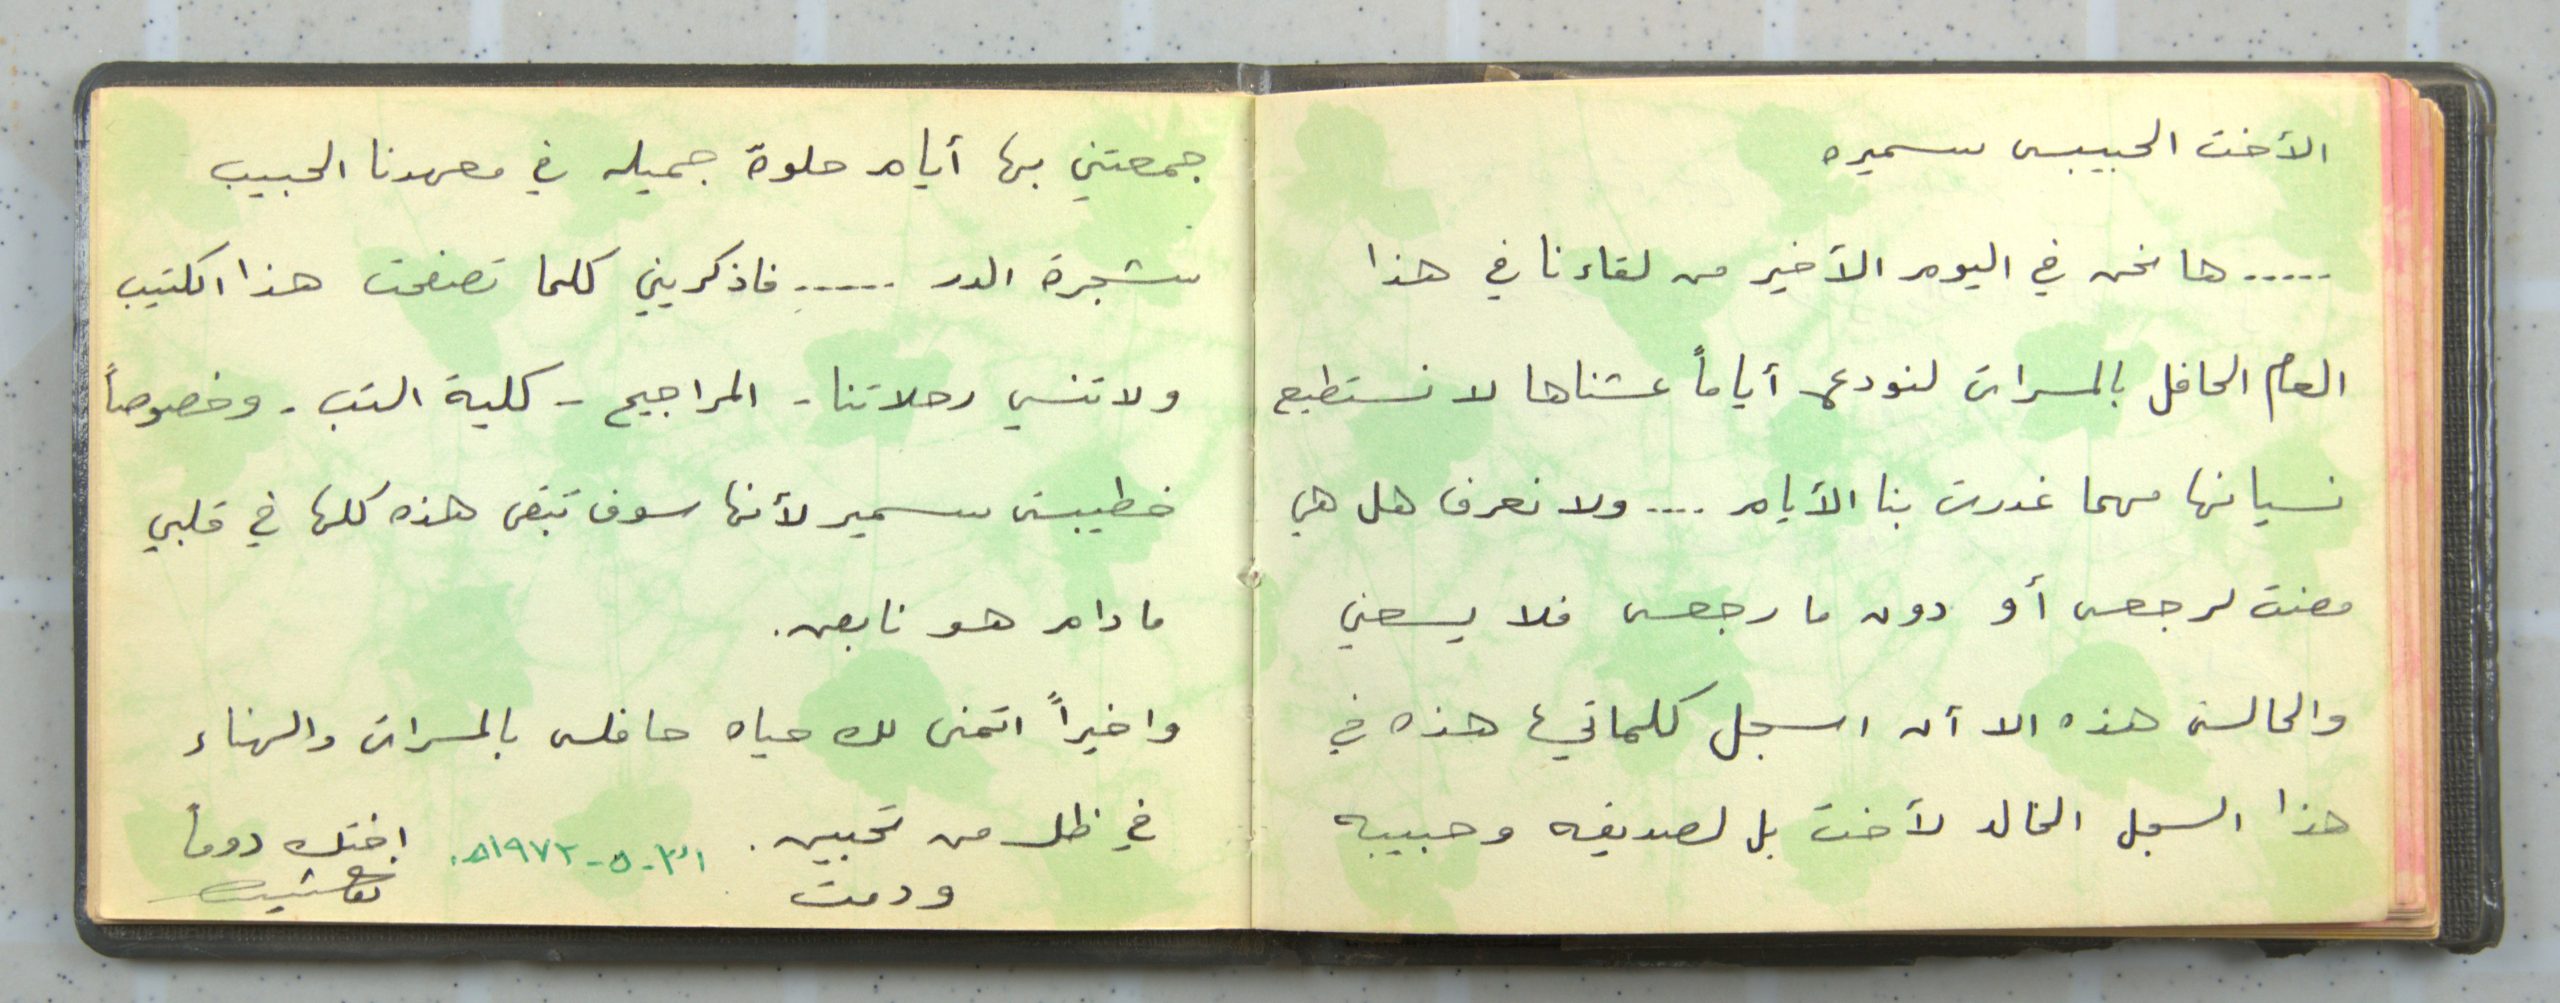 الأخت الحبيبة سميره
..... ها نحن في اليوم الأخير من لقاءنا في هذا
العام الحافل بالمسرات لنودع أياماً عشناها لا نستطيع
نسيانها مهما غدرت بنا الأيام .... ولا نعرف هل هي
مضت لرجعة أو دون ما رجعة فلا يسعني
والحالة هذه الا أن اسجل كلماتي هذه في
هذا السجل الخالد لأخت بل لصديقه وحبيبه
جمعتني بها أيام حلوة جميله في معهدنا الحبيب
شجرة الدر ...... فاذكريني كلما تصفحت هذا الكتيب
ولا تنسي رحلاتنا - المراجيح - كلية التب - وخصوصاً
خطيبة سمير لأنها سوف تبقى هذه كلها في قلبي
ما دام هو نابض.
واخيراً اتمنى لك حياه حافلة بالمسرات والهناء
في ظل من تحبين.
ودمت
٣١-٥-١٩٧٢م.
اختك دوماً